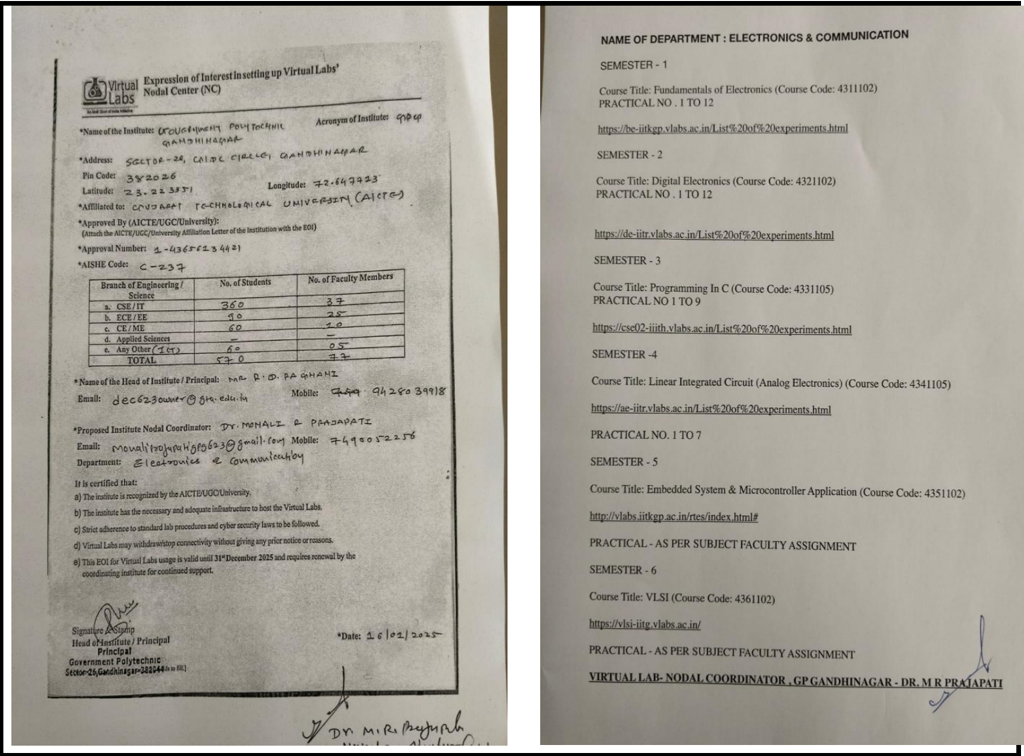 Virtual Labs
Expression of Interest in setting up Virtual Labs'
Nodal Center (NC)
*Name of the Institute: GOVERNMENT POLYTECHNIC Acronym of Institute: GPG
GANDHINAGAR
*Address: SECTOR-26, GIDC CIRCLE, GANDHINAGAR
Pin Code: 382026
Latitude: 23.223151 Longitude: 72.647723
*Affiliated to: GUJARAT TECHNOLOGICAL UNIVERSITY (AICTE)
*Approved By (AICTE/UGC/University):
(Attach the AICTE/UGC/University Affiliation Letter of the Institution with the EOI)
*Approval Number: 1-43656234421
*AISHE Code: C-237
Branch of Engineering / Science No. of Students No. of Faculty Members
a. CSE/IT 360 37
b. ECE/EE 90 25
c. CE/ME 60 10
d. Applied Sciences – –
e. Any Other (ICT) 60 05
TOTAL 570 77
*Name of the Head of Institute / Principal: MR R. D. RAGHANI
Email: dec623owner@gtu.edu.in Mobile: 9428039918
*Proposed Institute Nodal Coordinator: Dr. MONALI R PRAJAPATI
Email: monaliprajapatigpg623@gmail.com Mobile: 7490052256
Department: Electronics & Communication
It is certified that:
a) The institute is recognized by the AICTE/UGC/University.
b) The institute has the necessary and adequate infrastructure to host the Virtual Labs.
c) Strict adherence to standard lab procedures and cyber security laws to be followed.
d) Virtual Labs may withdraw/stop connectivity without giving any prior notice or reasons.
e) This EOI for Virtual Labs usage is valid until 31st December 2025 and requires renewal by the
coordinating institute for continued support.
Signature & Stamp
Head of Institute / Principal *Date: 16/01/2025
Principal
Government Polytechnic
Sector-26, Gandhinagar-382044
Dr M.R. Prajapati
NAME OF DEPARTMENT : ELECTRONICS & COMMUNICATION
SEMESTER - 1
Course Title: Fundamentals of Electronics (Course Code: 4311102)
PRACTICAL NO . 1 TO 12
https://be-iitkgp.vlabs.ac.in/List%20of%20experiments.html
SEMESTER - 2
Course Title: Digital Electronics (Course Code: 4321102)
PRACTICAL NO . 1 TO 12
https://de-iitr.vlabs.ac.in/List%20of%20experiments.html
SEMESTER - 3
Course Title: Programming In C (Course Code: 4331105)
PRACTICAL NO 1 TO 9
https://cse02-iiith.vlabs.ac.in/List%20of%20experiments.html
SEMESTER -4
Course Title: Linear Integrated Circuit (Analog Electronics) (Course Code: 4341105)
https://ae-iitr.vlabs.ac.in/List%20of%20experiments.html
PRACTICAL NO. 1 TO 7
SEMESTER - 5
Course Title: Embedded System & Microcontroller Application (Course Code: 4351102)
http://vlabs.iitkgp.ac.in/rtes/index.html#
PRACTICAL - AS PER SUBJECT FACULTY ASSIGNMENT
SEMESTER - 6
Course Title: VLSI (Course Code: 4361102)
https://vlsi-iitg.vlabs.ac.in/
PRACTICAL - AS PER SUBJECT FACULTY ASSIGNMENT
VIRTUAL LAB- NODAL COORDINATOR , GP GANDHINAGAR - DR. M R PRAJAPATI